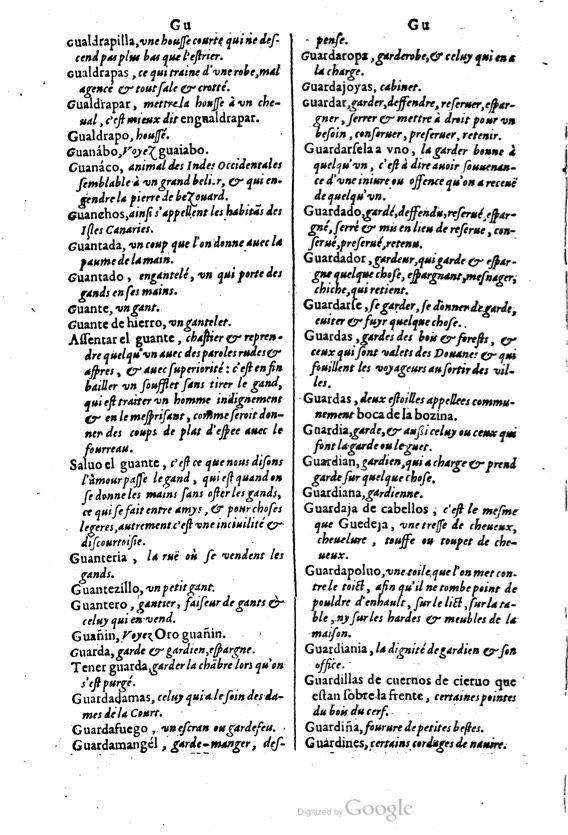 Gu
Gualdrapilla, vne housse courte qui ne des-
cend pas plus bas que l'estrier.
Gualdrapas, ce qui traine d'vne robe, mal
agencé & tout sale & crotté.
Gualdrapar, mettre la housse à vn che-
ual, c'est mieux dit engualdrapar.
Gualdrapo, houssé.
Guanábo, Voyez guaiabo.
Guanáco, animal des Indes Occidentales
semblable à vn grand belier, & qui en-
gendre la pierre de bezouard.
Guanchos, ainsi s'appellent les habitãs des
Isles Canaries.
Guantada, vn coup que l'on donne auec la
paume de la main.
Guantado, engantelé, vn qui porte des
gands en ses mains.
Guante, vn gant.
Guante de hierro, vn gantelet.
Assentar el guante, chastier & repren-
dre quelqu'vn auec des paroles rudes &
aspres, & auec superiorité: c'est en fin
bailler vn soufflet sans tirer le gand,
qui est traiter vn homme indignement
& en le mesprisant, comme seroit don-
ner des coups de plat d'espee auec le
fourreau.
Saluo el guante, c'est ce que nous disons
l'amour passe le gand, qui est quand on
se donne les mains sans oster les gands,
ce qui se fait entre amys, & pour choses
legeres, autrement c'est vne inciuilité &
discourtoisie.
Guanteria, la ruë où se vendent les
gands.
Guantezillo, vn petit gant.
Guantero, gantier, faiseur de gants &
celuy qui en vend.
Guañin, Voyez Oro guañin.
Guarda, garde & gardien, espargne.
Tener guarda, garder la chãbre lors qu'on
s'est purgé.
Guardadamas, celuy qui a le soin des da-
mes de la Court.
Guardafuego, vn escran ou gardefeu.
Guardamangél, garde-manger, des-
Gu
pense.
Guardaropa, garderobe, & celuy qui en a
la charge.
Guardajoyas, cabinet.
Guardar, garder, deffendre, reseruer, espar-
gner, serrer & mettre à droit pour vn
besoin, conseruer, preseruer, retenir.
Guardarsela a vno, la garder bonne à
quelqu'vn, c'est à dire auoir souuenan-
ce d'vne iniure ou offence qu'on a receuë
de quelqu'vn.
Guardado, gardé, deffendu, reserué, espar-
gné, serré & mis en lieu de reserue, con-
serué, preserué, retenu.
Guardador, gardeur, qui garde & espar-
gne quelque chose, espargnant, mesnager,
chiche, qui retient.
Guardarse, se garder, se donner de garde,
euiter & fuyr quelque chose.
Guardas, gardes des bois & forests, &
ceux qui sont valets des Doüanes & qui
fouillent les voyageurs au sortir des vil-
les.
Guardas, deux estoilles appellees commu-
nement boca de la bozina.
Guardia, garde, & aussi celuy ou ceux qui
font la garde ou le guet.
Guardian, gardien, qui a charge & prend
garde sur quelque chose.
Guardiana, gardienne.
Guardaja de cabellos, c'est le mesme
que Guedeja, vne tresse de cheueux,
cheuelure, touffe ou toupet de che-
ueux.
Guardapoluo, vne toile que l'on met con-
tre le toict, afin qu'il ne tombe point de
pouldre d'enhault, sur le lict, sur la ta-
ble, ny sur les hardes & meubles de la
maison.
Guardiania, la dignité de gardien & son
office.
Guardillas de cuernos de cieruo que
estan sobre la frente, certaines pointes
du bois du cerf.
Guardiña, fourure de petites bestes.
Guardines, certains cordages de nauire.
Digitized by Google